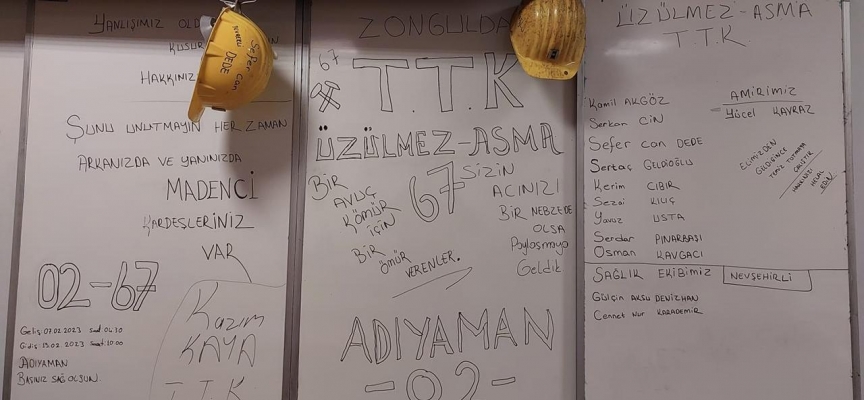 YANLIŞIMIZ
KUSUR
HAKKINIZ
ŞUNU UNUTMAYIN HER ZAMAN
ARKANIZDA VE YANINIZDA
MADENCİ
KARDEŞLERİNİZ
VAR
02-67
Geliş 07.02.2023 Saat:04:30
Gidiş 13.02.2023 Saat:10:00
ADIYAMAN
BAŞINIZ SAĞ OLSUN.
Kazım
KAYA
T.T.K.
Sefer can
DEDE
ZONGULDAK
67
T.T.K
ÜZÜLMEZ-ASMA
BİR
AVUÇ
KÖMÜR
İÇİN
BİR
ÖMÜR
VERENLER.
67
SİZİN
ACINIZI
BİR NEBZEDE
OLSA
Paylaşmaya
Geldik.
ADIYAMAN
-02-
ÜZÜLMEZ-ASMA
T.T.K
Kamil AKGÖZ
Serkan CİN
Sefer can DEDE
Sertaç GELDİOĞLU
Kerim CIBIR
Sezai KILIÇ
Yavuz USTA
Serdar PINARBAŞI
Osman KAVGACI
= AMİRİMİZ
Yücel KAVRAZ
ELİMİZDEN
GELDİĞİNCE
ÇALIŞTIK
HAKKINIZI HELAL
EDİN
SAĞLIK EKİBİMİZ NEVŞEHİRLİ
Gülçin AKSU DENİZHAN
Cennet Nur KARADEMİR